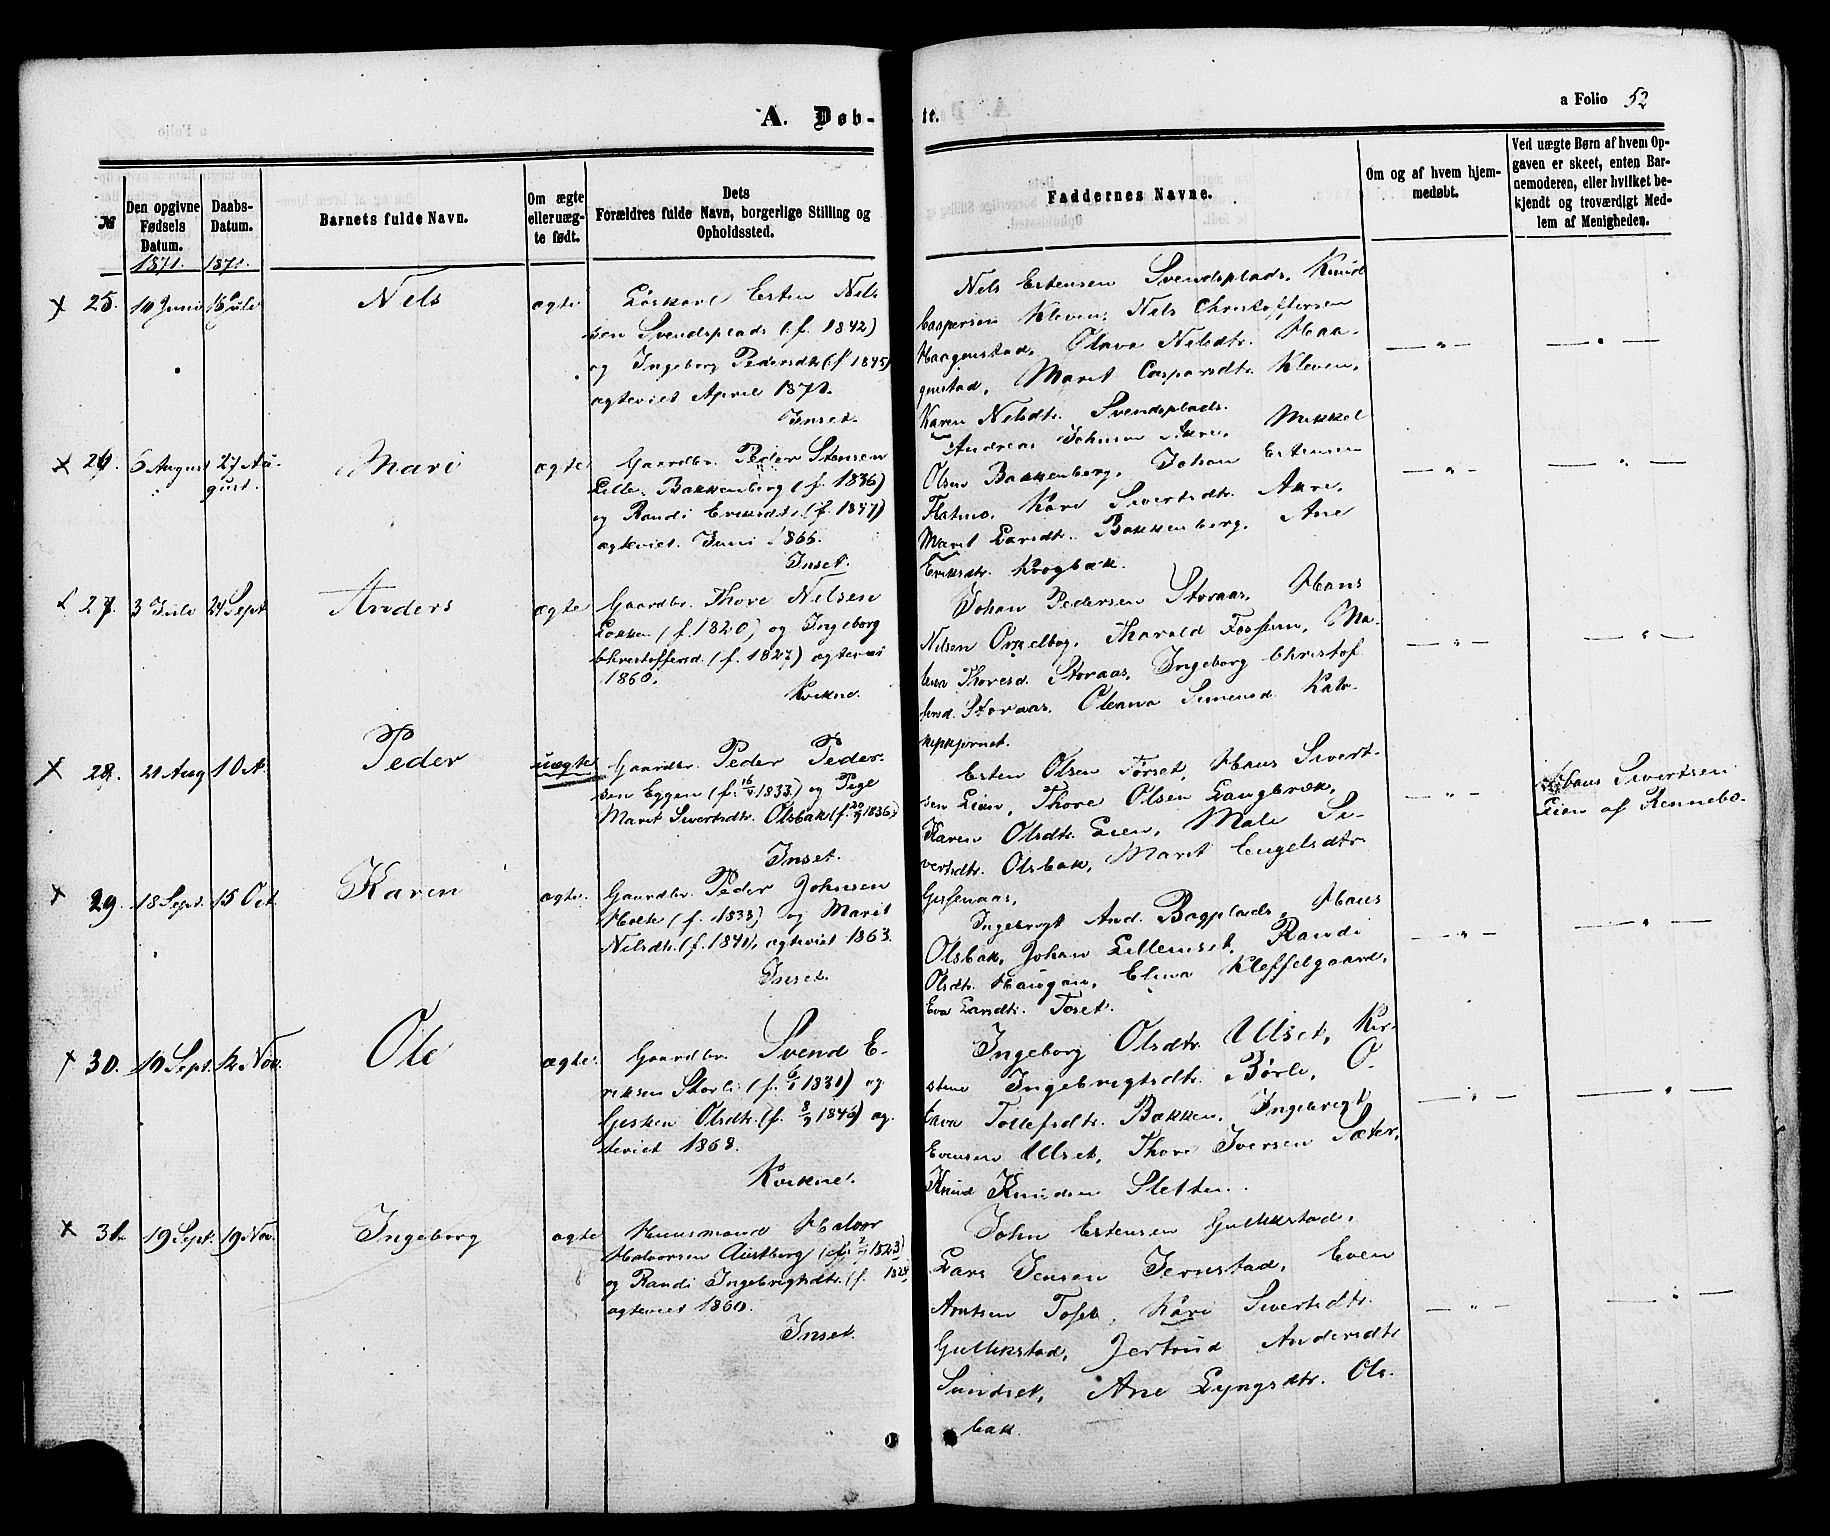 A. Døb-
te.
a Folio 52
№
Den opgivne Fødsels Datum. 1871.
Daabs-Datum. 1871.
Barnets fulde Navn.
Om ægte eller uægte født.
Dets Forældres fulde Navn, borgerlige Stilling og Opholdssted.
Faddernes Navne.
Om og af hvem hjemmedøbt.
Ved uægte Børn af hvem Opgaven er skeet, enten Barnemoderen, eller hvilket bekjendt og troværdigt Medlem af Menigheden.
25. 10 Juni 16 Juli Nels ægte
Løskarl Esten Nels
sen Svendsplads (f. 1842)
og Ingeborg Pedersdtr. (f. 1845)
ægteviet April 1871.
Inset.
Nels Estensen Svendsplads, Knud
Caspersen Kleven, Nils Christoffersen
Haagenstad, Olava Nilsdtr. Haa-
genstad, Marit Caspersdtr. Kleven,
Karen Nelsdtr. Svendsplads.
26. 6 August 27 Au-
gust. Mari ægte
Gaardbr. Peder Stensen
Lille-Bakkenberg (f. 1836)
og Randi Eriksdtr. (f. 1847)
ægteviet Juni 1866.
Inset.
Andreas Johnsen Akre, Mikkel
Olsen Bakkenberg, Johan Estensen
Flatmo, Kari Sivertsdtr. Akre,
Marit Larsdtr. Bakkenberg, Ane
Eriksdtr. Krogbæk.
27. 3 Juli 24 Sept Anders ægte
Gaardbr. Thore Nelsen
Løkken (f. 1820) og Ingeborg
Christoffersd. (f. 1827) ægteviet
1860.
Kvikne.
Johan Pedersen Storaas, Hans
Nilsen Orkelbog, Harald Fossum, Ma-
lena Thoresd. Storaas, Ingeborg Christof
fersd. Storaas, Oleana Simensd.
28. 21 Aug 10 Peder uægte
Gaardbr. Peder Peder-
sen Eggen (f. 16/ 1833) og Pige
Marit Sivertsdtr. Olsbak (f. 20/ 1836)
Inset.
Esten Olsen Torset, Hans Sivert-
sen Lien, Thore Olsen Langbræk,
Karen Olsdtr. Lien, Male Si-
vertsdtr. Olsbak, Marit Engelsdtr.
Gissenaas,
Hans Sivertsen
Lien af Rennebo.
29. 18 Sept. 15 Oct. Karen ægte.
Gaardbr. Peder Johnsen
Holte (f. 1833) og Marit
Nilsdtr. (f. 1841), ægteviet 1863.
Inset.
Ingebrigt And. Bagplads, Hans
Olsbak, Johan Lilleinset, Randi
Olsdtr. Haugan, Elina Kleffelgaard,
Eva Larsdtr. Toset.
30. 10 Sept. 12 Nov. Ole ægte.
Gaardbr. Svend E-
riksen Storli (f. 6/1 1831) og
Gesken Olsdtr. (f. 8/9 1846) æg-
teviet 1868.
Kvikne.
Ingeborg Olsdtr. Ulset, Kir-
stine Ingebrigtsdtr. Børli, O-
lava Tollefsdtr. Bakken, Ingebrigt
Evensen Ulset, Thore Iversen Sæter,
Knud Knudsen Sletten.
31. 19 Sept. 19 Nov. Ingeborg ægte
Huusmand Halvor
Halvorsen Austberg (f. 1823)
og Randi Ingebrigtsdtr. (f. 1828)
ægteviet 1860.
Inset.
John Estensen Gullikstad,
Lars Jensen Jernstad, Even
Arntsen Toset, Kari Sivertsdtr.
Gullikstad, Jertrud Andersdtr
Sundset, Ane Lyngsdtr. Ols-
bak.